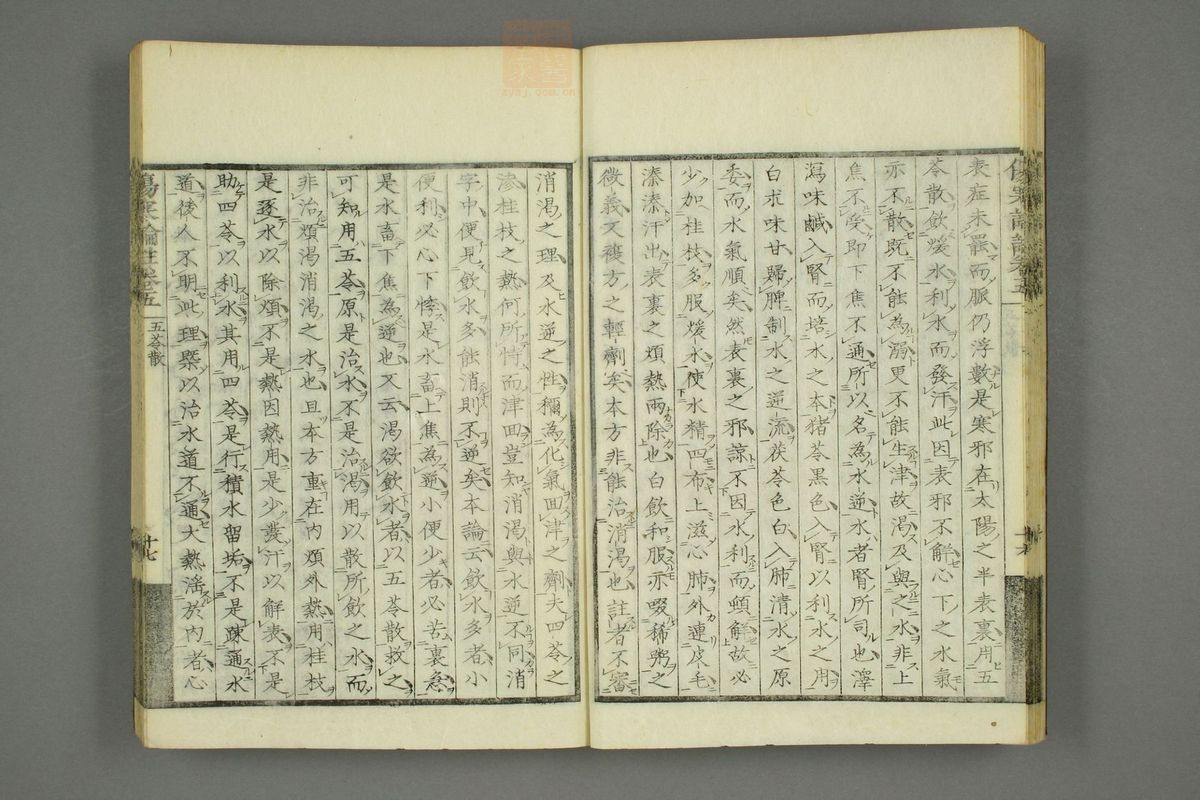 表症未罷而脈仍浮數是寒邪在太陽之半表裏用五
苓散飲煖水利水而發汗此因表邪不解心下之水氣
亦不散既不能為溺更不能生津故渴及與之水非上
焦不受即下焦不通所以名為水逆水者腎所司也澤
瀉味鹹入腎而培水之本猪苓黑色入腎以利水之用
白朮味甘歸脾制水之逆流茯苓色白入肺清水之原
委而水氣順矣然表裏之邪諒不因水利而頓解故必
少加桂枝多服煖水使水精四布上滋心肺外達皮毛
溱溱汗出表裏之煩熱兩除也白飲和服亦啜稀粥之
微義又複方之輕劑矣本方非能治消渴也註者不審
消渴之理及水逆之性稱為化氣回津之劑夫四苓之
滲桂枝之熱何所恃而津回豈知消渴與水逆不同消
字中便見飲水多能消則不逆矣本論云飲水多者小
便利必心下悸是水畜上焦為逆小便少者必苦裏急
是水畜下焦為逆也又云渴欲飲水者以五苓散救之
可知用五苓原是治水不是治渴用以散所飲之水而
非治煩渴消渴之水也且本方重在內煩外熱用桂枝
是逐水以除煩不是熱因熱用是少發汗以解表不是
助四苓以利水其用四苓是行積水留垢不是疎通水
道後人不明此理槩以治水道不通大熱淫於內者心
五苓散